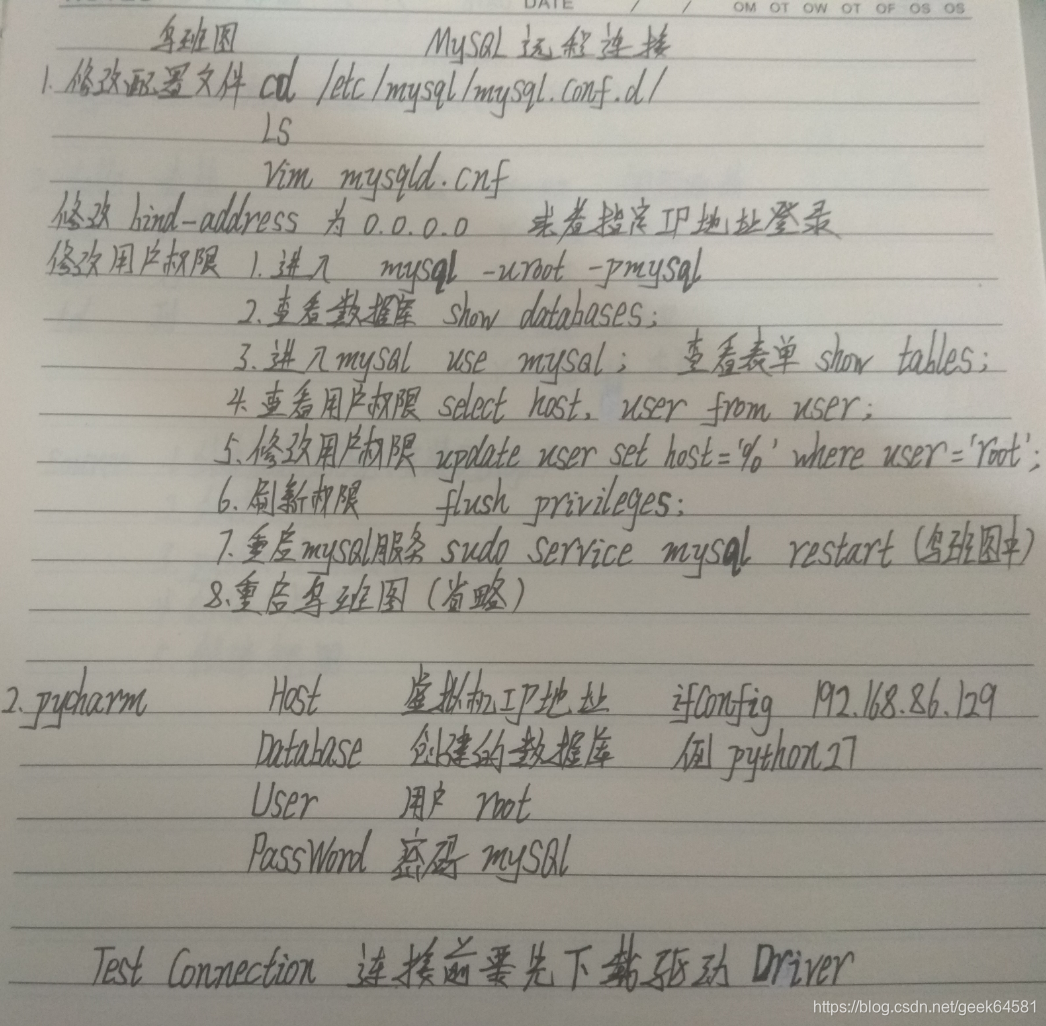 DATE / / OM OT OW OT OF OS OS
乌班图 MySQL 远程连接
1.修改配置文件 cd /etc/mysql/mysql.conf.d/
LS
Vim mysqld.cnf
修改 bind-address 为 0.0.0.0 或者指定IP地址登录
修改用户权限 1.进入 mysql -uroot -pmysql
2.查看数据库 show databases;
3.进入mysql use mysql; 查看表单 show tables;
4.查看用户权限 select host, user from user;
5.修改用户权限 update user set host='%' where user='root';
6.刷新权限 flush privileges;
7.重启mysql服务 sudo service mysql restart (乌班图中)
8.重启乌班图 (省略)
2.pycharm Host 虚拟机IP地址 ifConfig 192.168.86.129
Database 创建的数据库 例 python27
User 用户 root
PassWord 密码 mySQl
Test Connection 连接前要先下载驱动 Driver
https://blog.csdn.net/geek64581